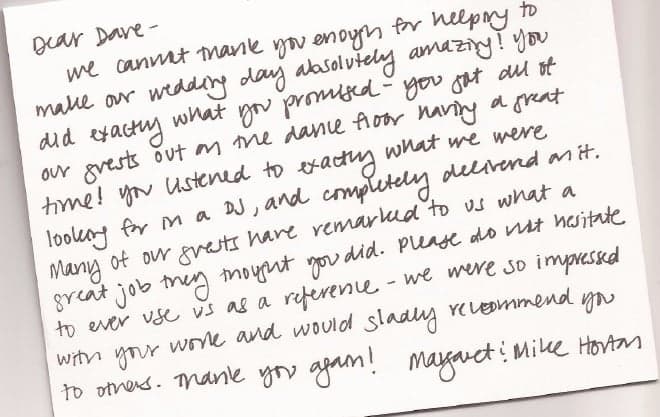 Dear Dave -
we cannot thank you enough for helping to
make our wedding day absolutely amazing! You
did exactly what you promised - you got all of
our guests out on the dance floor having a great
time! You listened to exactly what we were
looking for in a DJ, and completely delivered on it.
Many of our guests have remarked to us what a
great job they thought you did. Please do not hesitate
to ever use us as a reference - we were so impressed
with your work and would gladly recommend you
to others. Thank you again! Margaret & Mike Horton